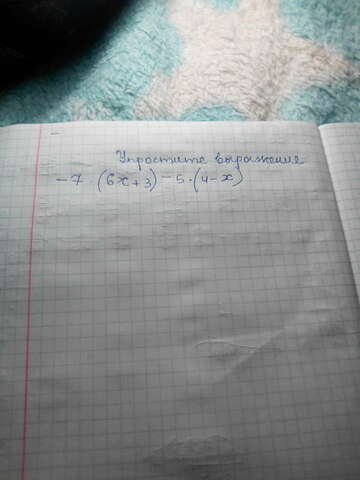 Упростите выражение
-7 · (6x+3) - 5 · (4-x)